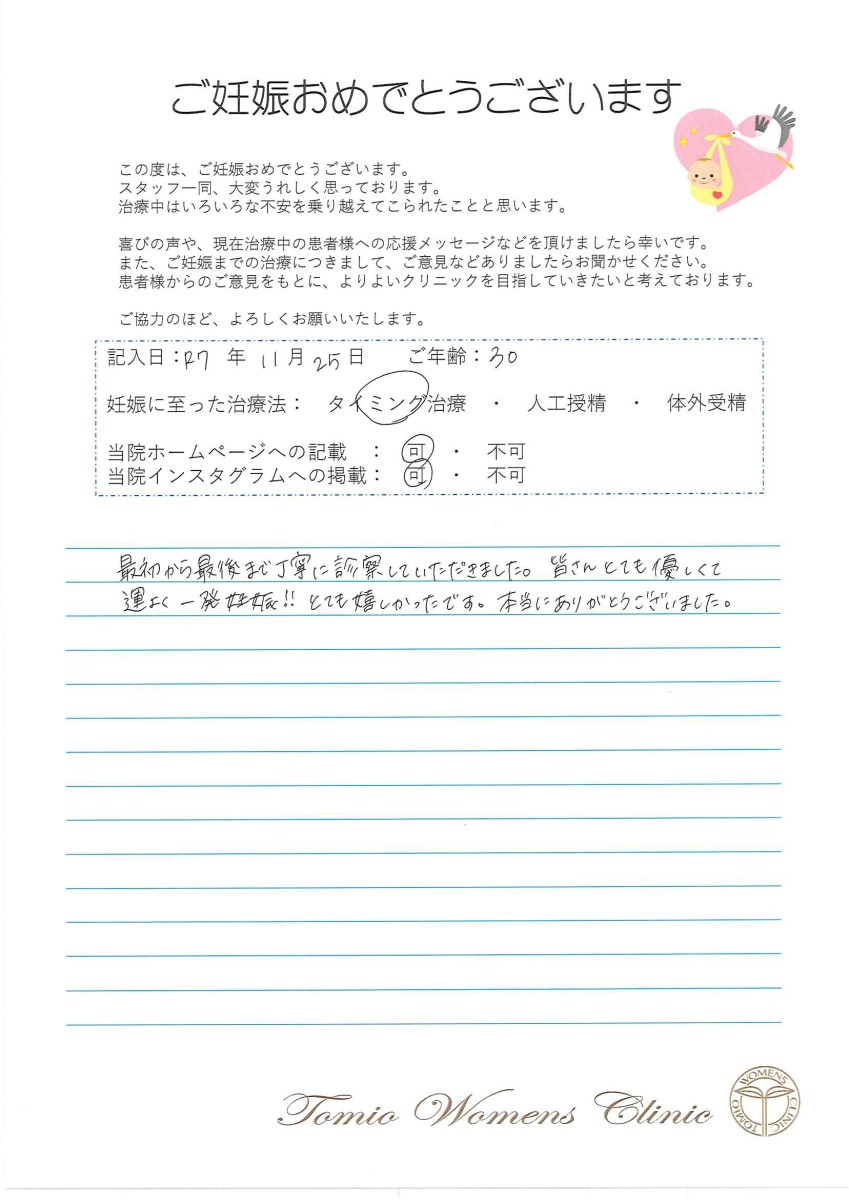 ご妊娠おめでとうございます
この度は、ご妊娠おめでとうございます。
スタッフ一同、大変うれしく思っております。
治療中はいろいろな不安を乗り越えてこられたことと思います。
喜びの声や、現在治療中の患者様への応援メッセージなどを頂けましたら幸いです。
また、ご妊娠までの治療につきまして、ご意見などありましたらお聞かせください。
患者様からのご意見をもとに、よりよいクリニックを目指していきたいと考えております。
ご協力のほど、よろしくお願いいたします。
記入日：R7 年 11月 25日 ご年齢：30
妊娠に至った治療法： タイミング治療 ・ 人工授精 ・ 体外受精
当院ホームページへの記載 ： 可 ・ 不可
当院インスタグラムへの掲載： 可 ・ 不可
最初から最後まで丁寧に診察していただきました。皆さんとても優しくて
運よく一発妊娠!! とても嬉しかったです。本当にありがとうございました。
Tomio Womens Clinic
TOMIO WOMENS CLINIC